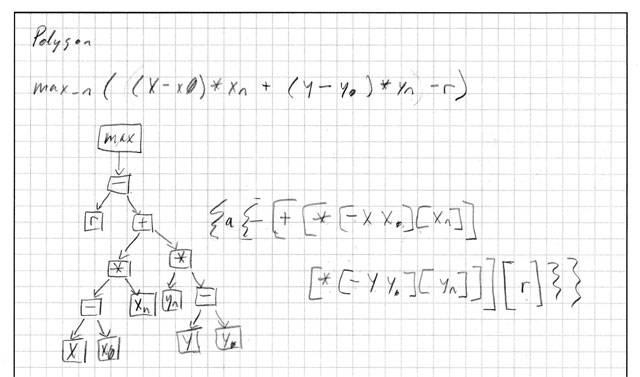 Polygon
max_n ( (X-x0)*xn + (Y-y0)*yn -r)
max
-
r +
* *
- xn yn -
X x0 Y y0
{a{- [+ [* [-X X0] [Xn]]
[* [-Y Y0] [yn]]] [r] }}